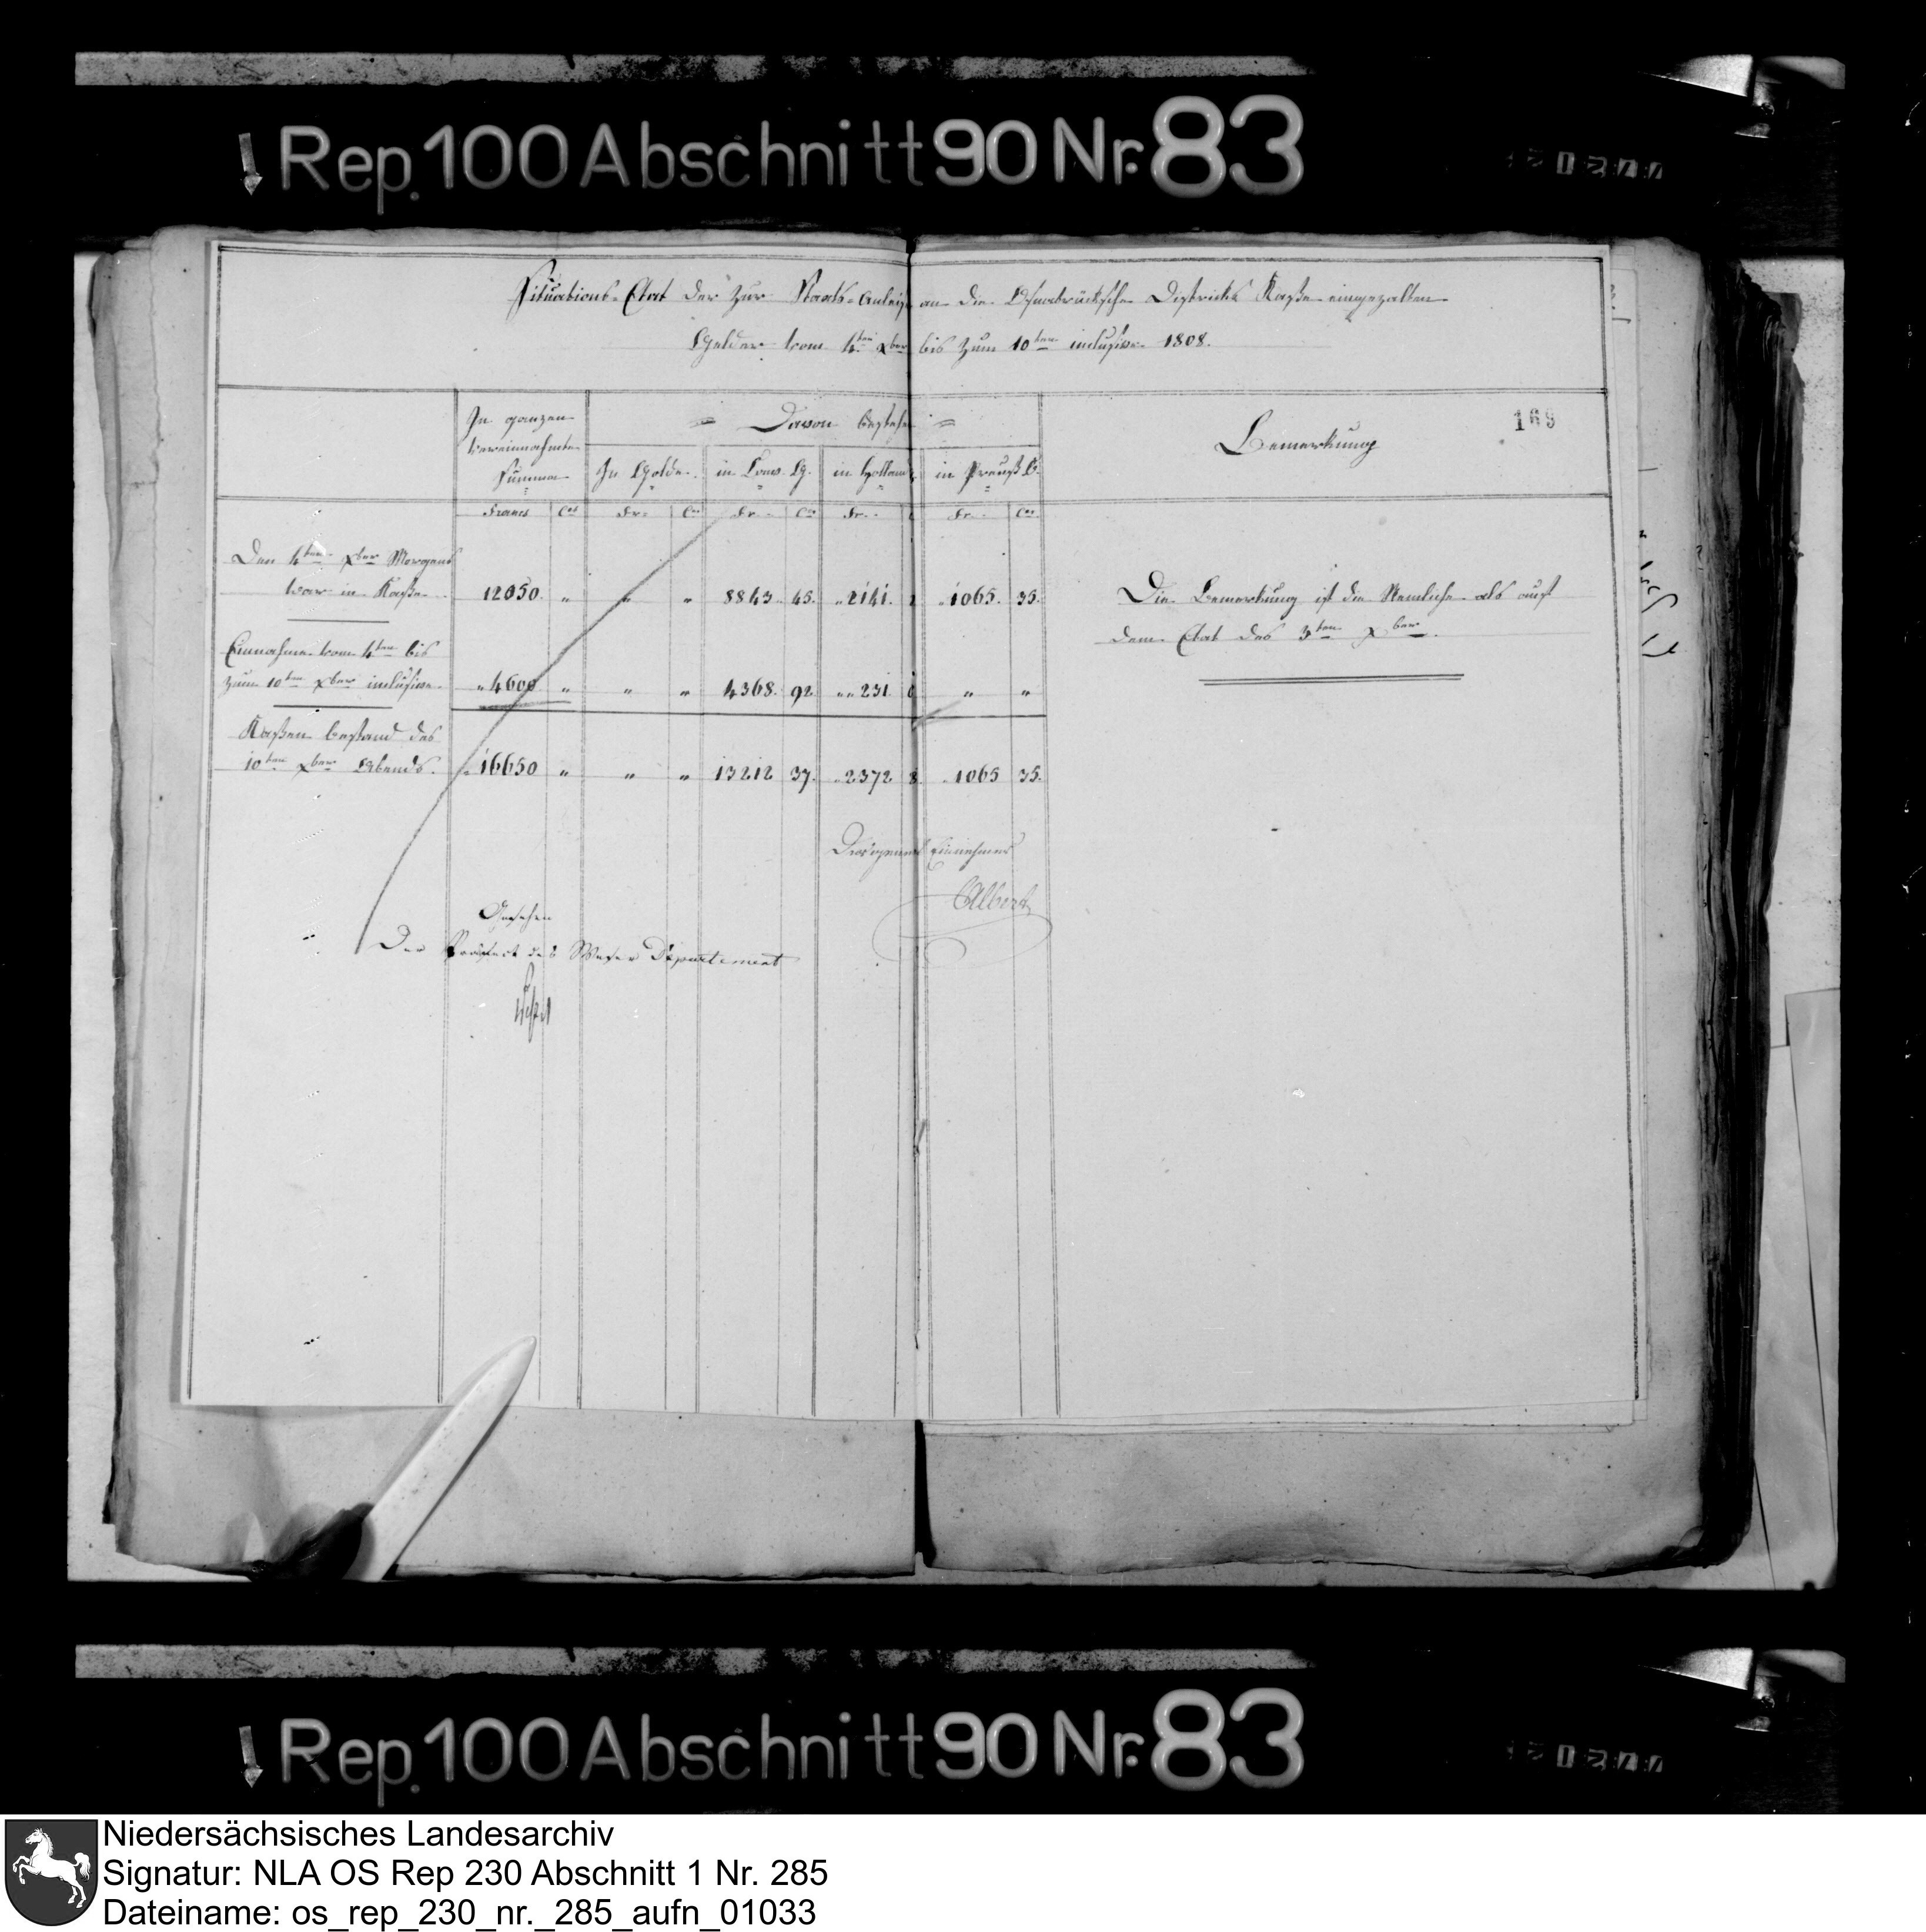 Rep. 100 Abschnitt 90 Nr. 83
Situations-Etat der zur Staats-Anleihe an die Osnabrücksche Districts Kaße eingezalten
Gelder vom 4ten Xber bis zum 10ten inclusive 1808.
In ganzen
vereinnahmte
Summa
Davon bestehen
Bemerkung
169
In Golde
in Conv. G.
in Holland
in Preuß. C.
Francs Ces Fr. Ces Fr. Ces Fr. Fr. Ces
Den 4ten Xber Morgens
war in Kaße
12050. „ „ „ 8843. 45. „2141. „1065. 35.
Die Bemerkung ist die Nemliche als auf
dem Etat des 3ten Xber.
Einnahme vom 4ten bis
zum 10ten Xber inclusive
„4600 „ „ „ 4368. 92 „„231 „ „
Kaßen bestand des
10ten Xber Abends.
16650 „ „ „ 13212 37. „2372 8 „1065 35.
Einnehmer
Albert
Gesehen
Der Praefect des Weser Departement
Rep. 100 Abschnitt 90 Nr. 83
Niedersächsisches Landesarchiv
Signatur: NLA OS Rep 230 Abschnitt 1 Nr. 285
Dateiname: os_rep_230_nr._285_aufn_01033